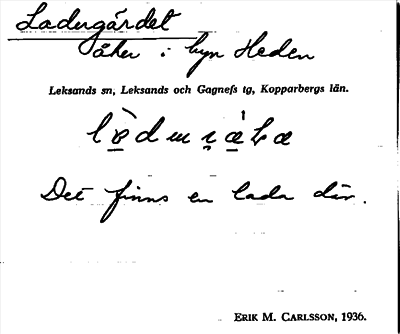 Ladugärdet
åker i byn Heden
Leksands sn, Leksands och Gagnefs tg, Kopparbergs län.
Det finns en lada där.
ERIK M. CARLSSON, 1936.